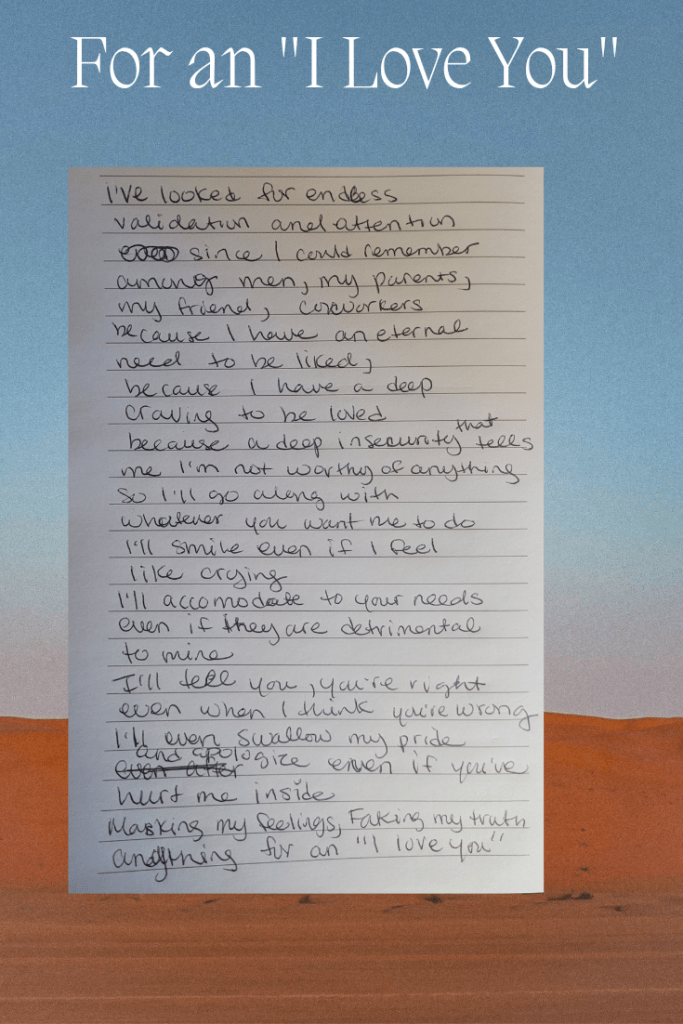 For an "I Love You"
I've looked for endless
validation and attention
since I could remember
among men, my parents,
my friend, coworkers
because I have an eternal
need to be liked,
because I have a deep
craving to be loved
because a deep insecurity that tells
me I'm not worthy of anything
so I'll go along with
whatever you want me to do
I'll smile even if I feel
like crying
I'll accomodate to your needs
even if they are detrimental
to mine
I'll tell you, you're right
even when I think you're wrong
I'll even swallow my pride
and apologize even if you've
hurt me inside
Masking my feelings, Faking my truth
anything for an "I love you"